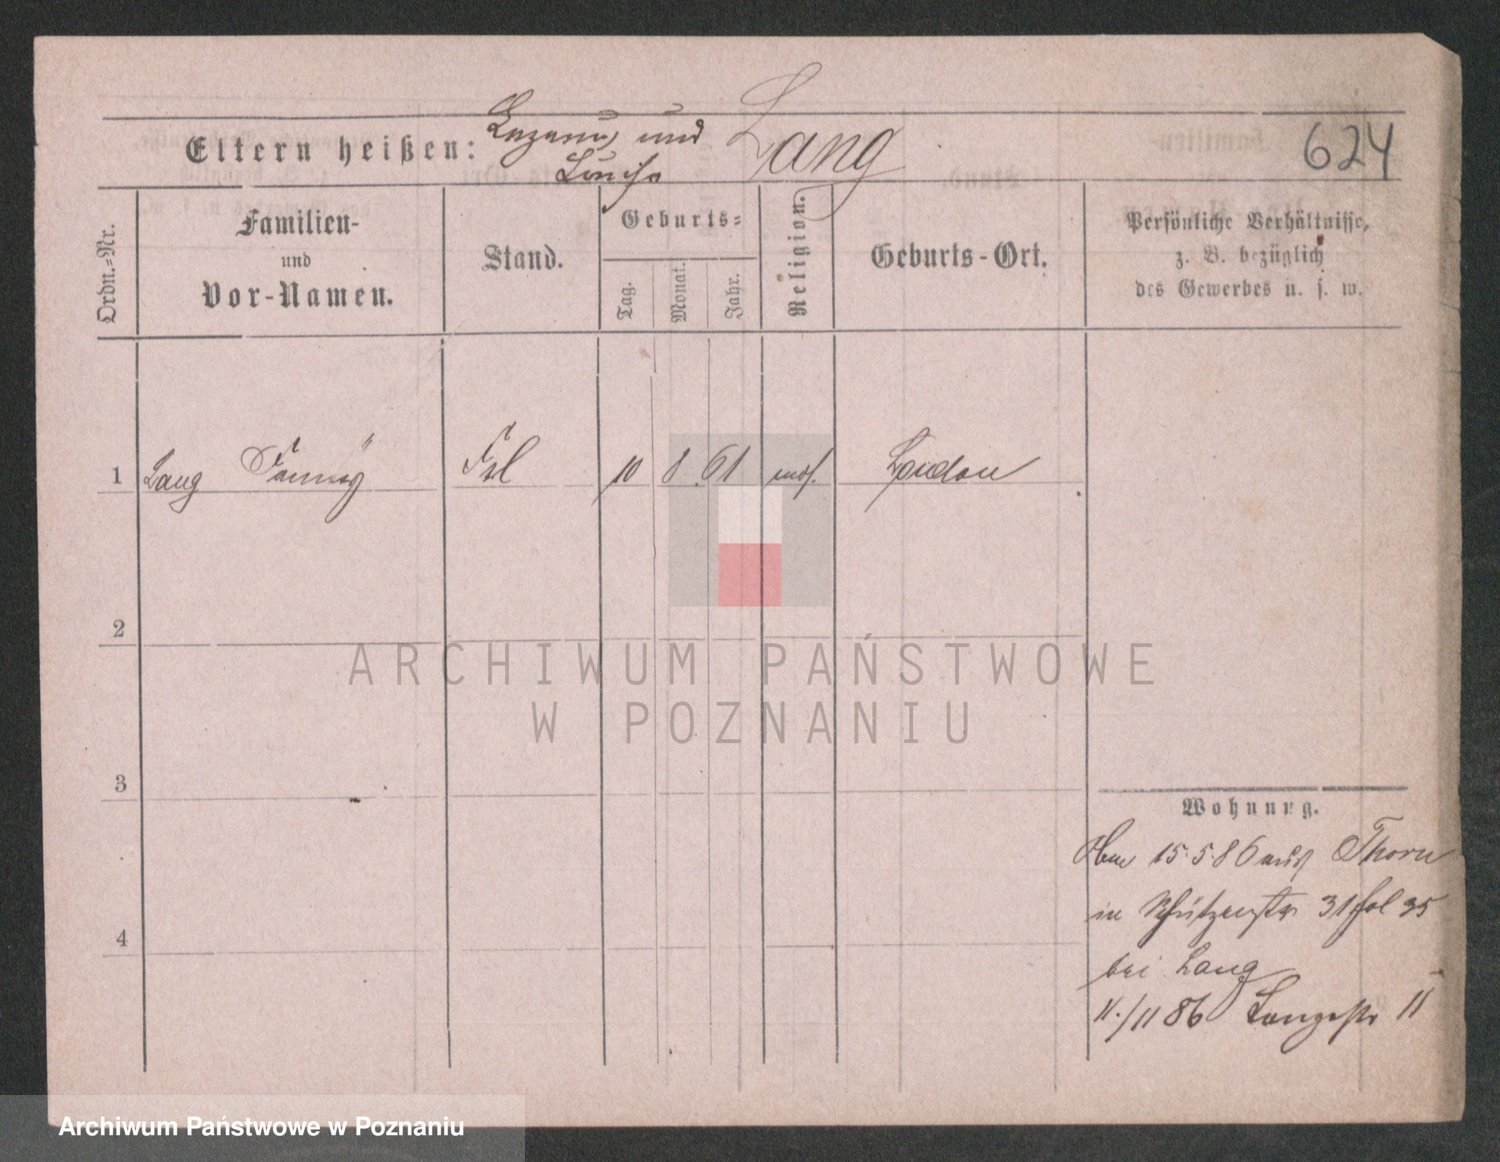 Eltern heißen: Lazarus und Louise Lang
624
Ordn.-Nr.
Familien-
und
Vor-Namen.
Stand.
Geburts-
Tag.
Monat.
Jahr.
Religion.
Geburts-Ort.
Persönliche Verhältnisse,
z. B. bezüglich
des Gewerbes u. s. w.
1 Lang Fanny Frl 10 8 61 mos. London
2
3
4
Wohnung.
15.5.86 aus Thorn
in Schützenstr 31 fol 35
bei Lang
11./11 86 Langestr 11
ARCHIWUM PAŃSTWOWE
W POZNANIU
Archiwum Państwowe w Poznaniu